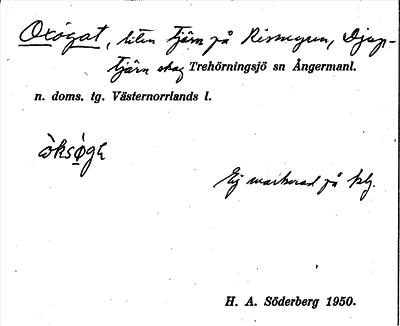 Oxögat, liten tjärn på Rismyren, Djup-
tjärn skog Trehörningsjö sn Ångermanl.
n. doms. tg. Västernorrlands l.
Ej markerad på
H. A. Söderberg 1950.